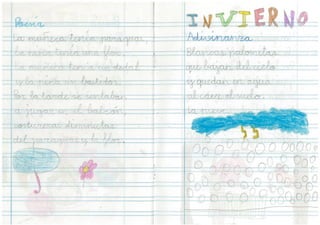 Poesía
La muñeca tenía paraguas
La niña tenía una flor.
La muñeca tenía un dedal
y la niña un bastidor.
Por la tarde se sentaban
a jugar en el balcón
costureras diminutas
del paraguas y la flor.
INVIERNO
Adivinanza
Blancas palomitas
que bajan del cielo
y quedan en agua
al caer al suelo.
La